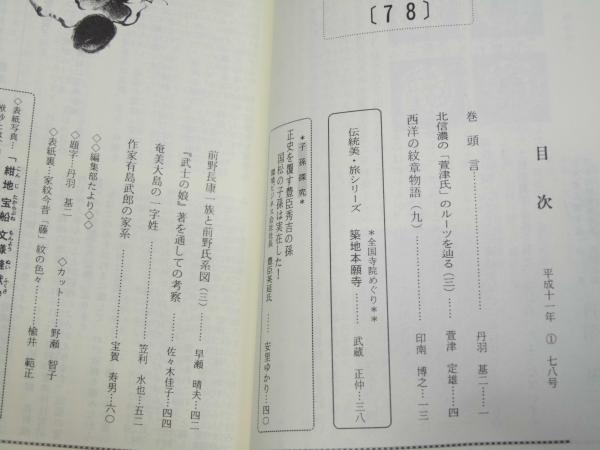 〔78〕
目次
平成十一年 ① 七八号
巻頭言……丹羽 基二……一
北信濃の「萱津氏」のルーツを辿る(三)……萱津 定雄……四
西洋の紋章物語(九)……印南 博之…一三
＊全国寺院めぐり＊＊
伝統美・旅シリーズ 築地本願寺……武蔵 正仲…三八
＊子孫探究＊
正史を覆す豊臣秀吉の孫
国松の子孫は実在した!
豊臣英延氏……安里ゆかり…四〇
前野長康一族と前野氏系図(三)……早瀬 晴夫…四二
『武士の娘』著を通しての考察……佐々木佳子…四四
奄美大島の一字姓……笠利 水也…五二
作家有島武郎の家系……宝賀 寿男…六〇
◇◇編集部たより◇◇
◇題字…丹羽 基二 ◇カット……野瀬 智子
◇表紙裏…家紋今昔「藤」紋の色々……楡井 範正
◇表紙写真…「紺地宝船文様